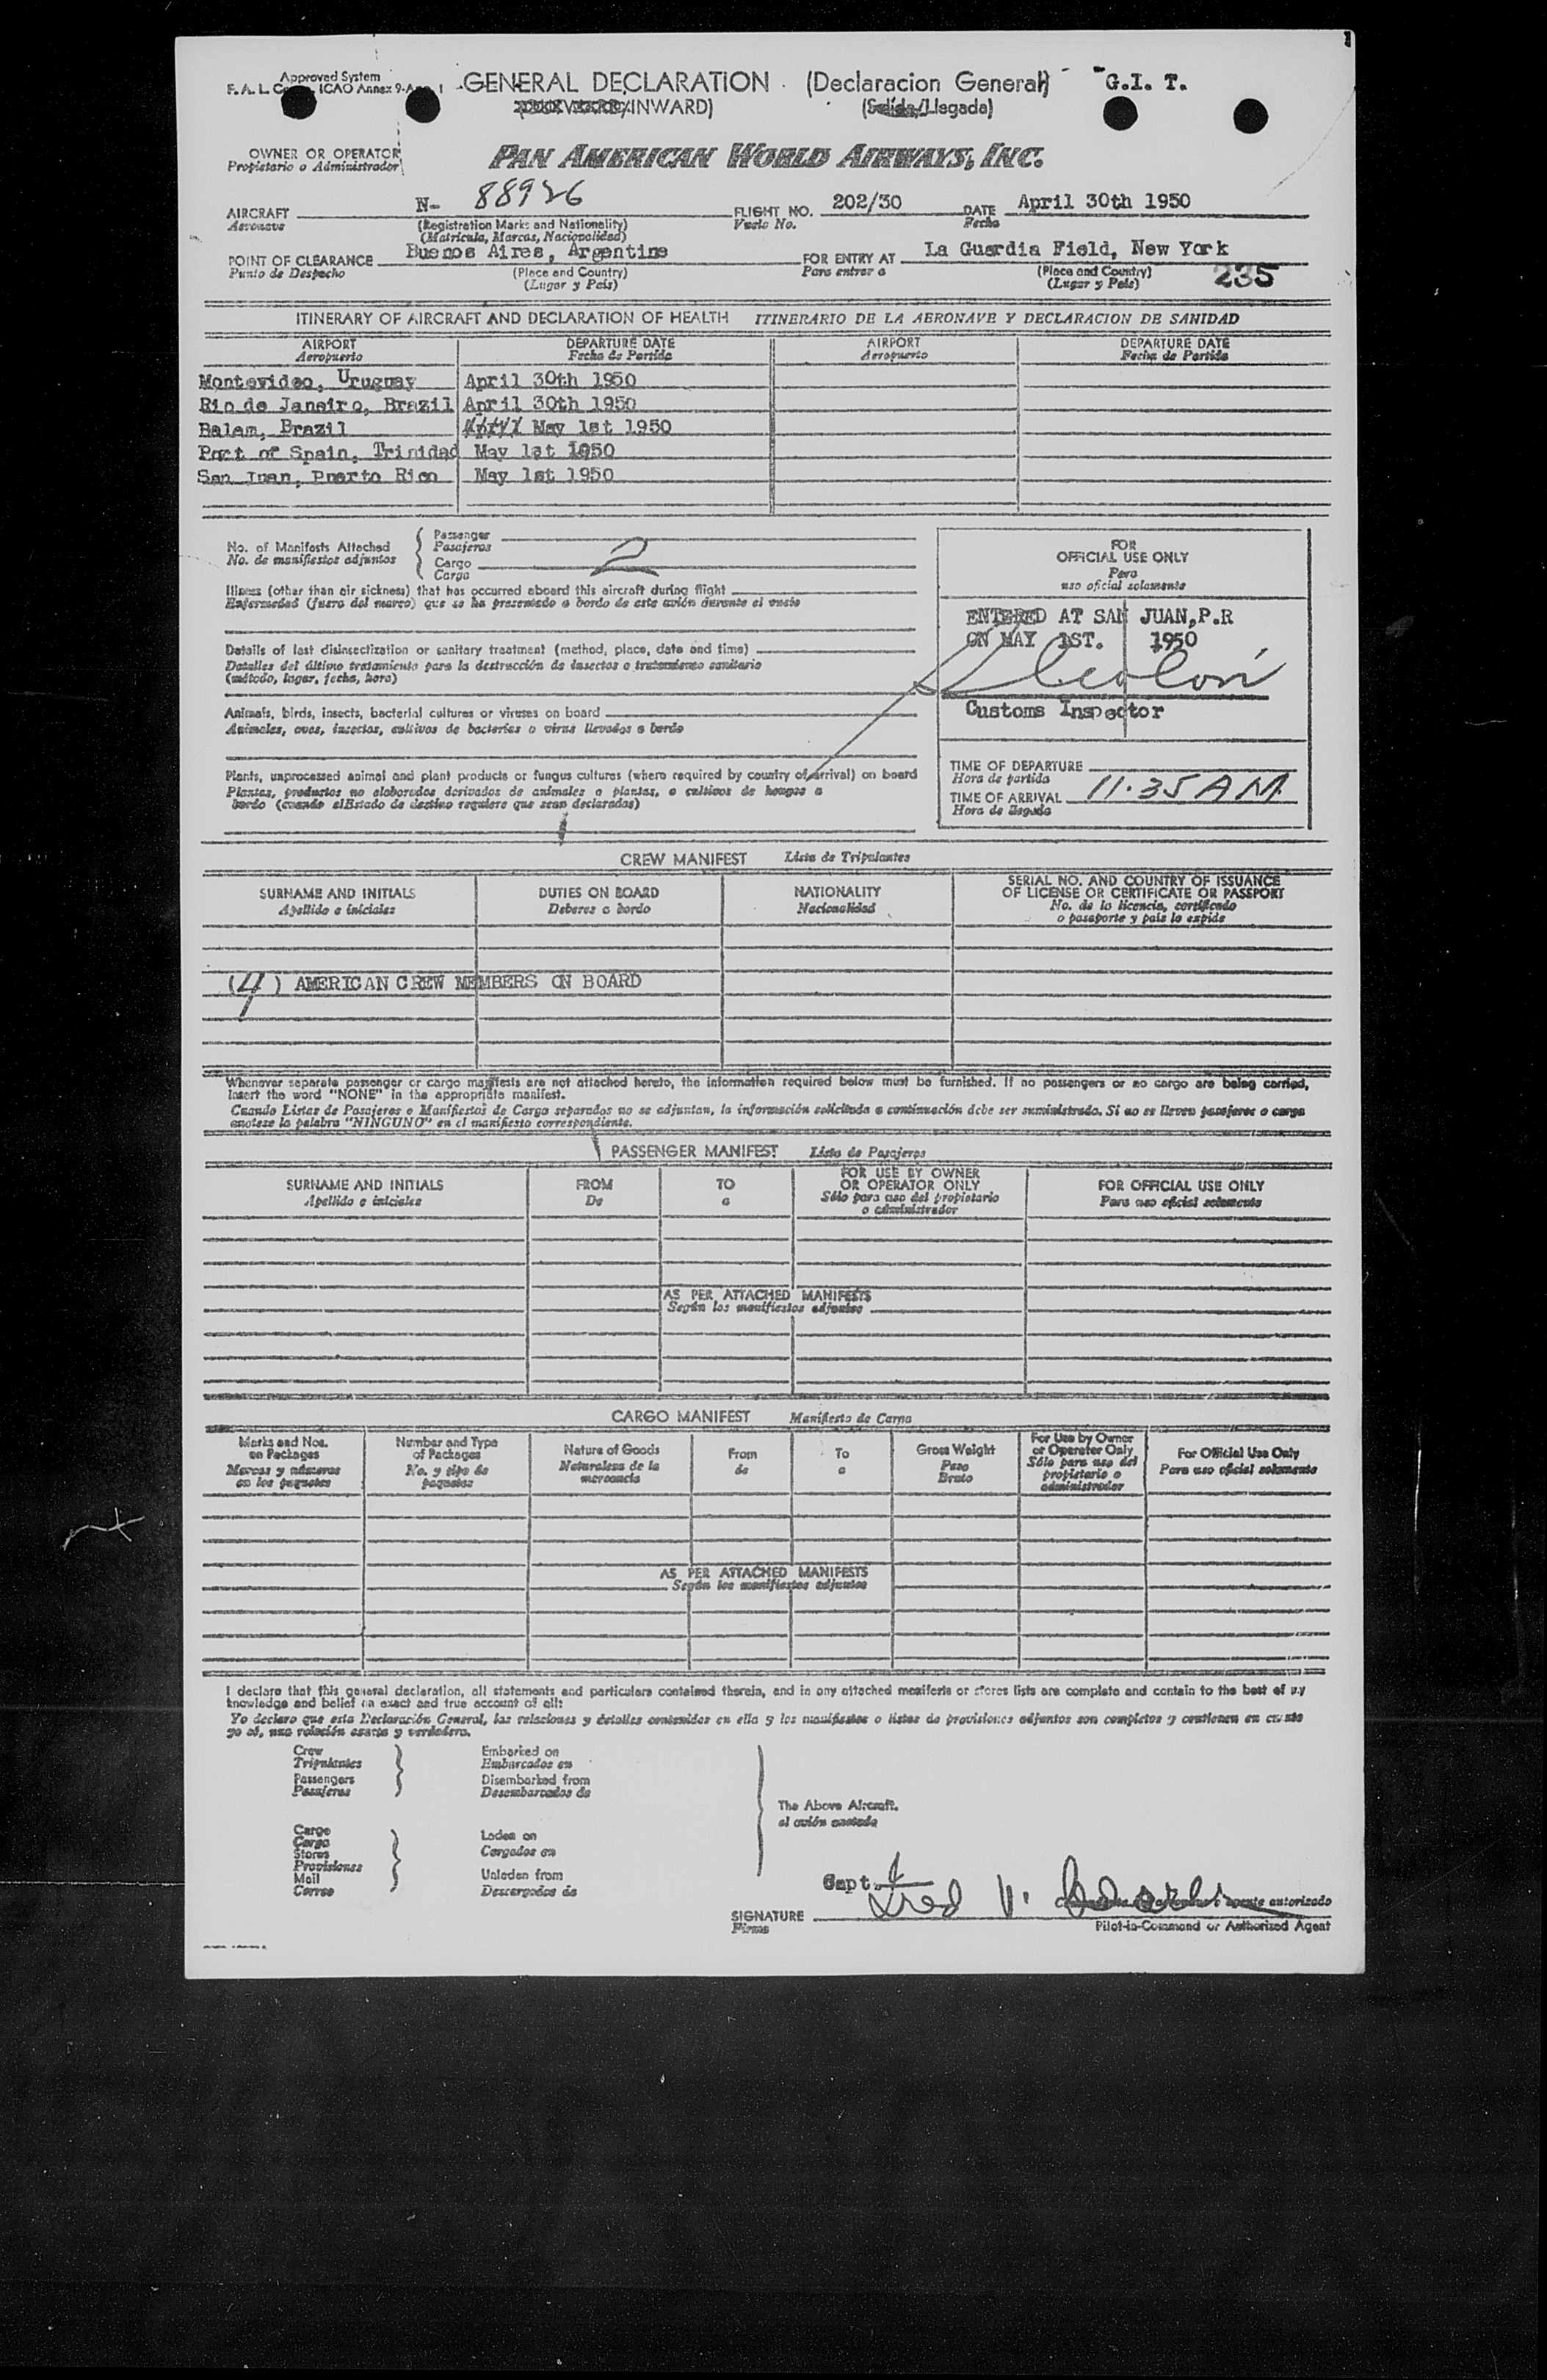 Approved System
F. A. L. ICAO Annex 9-
GENERAL DECLARATION (Declaracion General) G.I. T.
/INWARD) (Salida/Llegada)
OWNER OR OPERATOR
Propietario o Administrador
PAN AMERICAN WORLD AIRWAYS, INC.
AIRCRAFT N- 88926 FLIGHT NO. 202/30 DATE April 30th 1950
Aeronave (Registration Marks and Nationality) Vuelo No. Fecha
(Matricula, Marcas, Nacionalidad)
POINT OF CLEARANCE Buenos Aires, Argentina FOR ENTRY AT La Guardia Field, New York
Punto de Despacho (Place and Country) Para entrar a (Place and Country) 235
(Lugar y Pais) (Lugar y Pais)
ITINERARY OF AIRCRAFT AND DECLARATION OF HEALTH ITINERARIO DE LA AERONAVE Y DECLARACION DE SANIDAD
AIRPORT DEPARTURE DATE AIRPORT DEPARTURE DATE
Aeropuerto Fecha de Partida Aeropuerto Fecha de Partida
Montevideo, Uruguay April 30th 1950
Rio de Janeiro, Brazil April 30th 1950
Belem, Brazil April May 1st 1950
Port of Spain, Trinidad May 1st 1950
San Juan, Puerto Rico May 1st 1950
No. of Manifests Attached
No. de manifiestos adjuntos
Passenger
Pasajeros
Cargo 2
Carga
Illness (other than air sickness) that has occurred aboard this aircraft during flight
Enfermedad (fuera del mareo) que se ha presentado a bordo de este avión durante el vuelo
Details of last disinsectization or sanitary treatment (method, place, date and time)
Detalles del último tratamiento para la destrucción de insectos o tratamiento sanitario
(método, lugar, fecha, hora)
Animals, birds, insects, bacterial cultures or viruses on board
Animales, aves, insectos, cultivos de bacterias o virus llevados a bordo
Plants, unprocessed animal and plant products or fungus cultures (where required by country of arrival) on board
Plantas, productos no elaborados derivados de animales o plantas, o cultivos de hongos a
bordo (cuando elEstado de destino requiere que sean declarados)
FOR
OFFICIAL USE ONLY
Para
uso oficial solamente
ENTERED AT SAN JUAN, P.R
ON MAY 1ST. 1950
Customs Inspector
TIME OF DEPARTURE
Hora de partida
TIME OF ARRIVAL 11.35 AM
Hora de llegada
CREW MANIFEST Lista de Tripulantes
SURNAME AND INITIALS DUTIES ON BOARD NATIONALITY SERIAL NO. AND COUNTRY OF ISSUANCE
OF LICENSE OR CERTIFICATE OR PASSPORT
Apellido e iniciales Deberes a bordo Nacionalidad No. de la licencia, certificado
o pasaporte y pais lo expide
(4) AMERICAN CREW MEMBERS ON BOARD
Whenever separate passenger or cargo manifests are not attached hereto, the information required below must be furnished. If no passengers or no cargo are being carried,
insert the word "NONE" in the appropriate manifest.
Cuando Listas de Pasajeros o Manifiestos de Carga separados no se adjuntan, la información solicitada a continuación debe ser suministrada. Si no se lleven pasajeros o carga
anotese la palabra "NINGUNO" en el manifiesto correspondiente.
PASSENGER MANIFEST Lista de Pasajeros
SURNAME AND INITIALS FROM TO FOR USE BY OWNER
OR OPERATOR ONLY FOR OFFICIAL USE ONLY
Apellido e iniciales De a Sólo para uso del propietario
o administrador Para uso oficial solamente
AS PER ATTACHED MANIFESTS
Según los manifiestos adjuntos
CARGO MANIFEST Manifiesto de Carga
Marks and Nos.
on Packages
Marcas y números
en los paquetes
Number and Type
of Packages
No. y tipo de
paquetes
Nature of Goods
Naturaleza de la
mercancia
From
de
To
a
Gross Weight
Peso
Bruto
For Use by Owner
or Operator Only
Sólo para uso del
propietario o
administrador
For Official Use Only
Para uso oficial solamente
AS PER ATTACHED MANIFESTS
Según los manifiestos adjuntos
I declare that this general declaration, all statements and particulars contained therein, and in any attached manifests or stores lists are complete and contain to the best of my
knowledge and belief an exact and true account of all:
Yo declaro que esta Declaración General, las relaciones y detalles contenidos en ella y los manifiestos o listas de provisiones adjuntos son completos y contienen en cuanto
yo sé, una relación exacta y verdadera.
Crew
Tripulantes
Passengers
Pasajeros
Embarked on
Embarcados en
Disembarked from
Desembarcados de
Cargo
Carga
Stores
Provisiones
Mail
Correo
Laden on
Cargados en
Unladen from
Descargados de
The Above Aircraft.
el avión anotado
Capt.
SIGNATURE Fred V.
Firma
agente autorizado
Pilot-in-Command or Authorized Agent